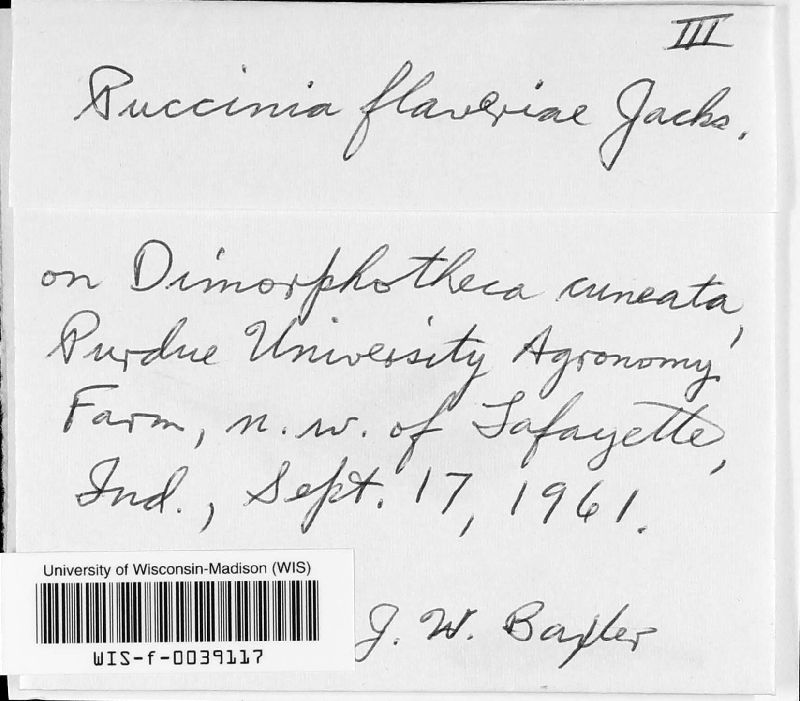 III
Puccinia flaveriae Jacks.
on Dimorphotheca cuneata,
Purdue University Agronomy
Farm, n.w. of Lafayette,
Ind., Sept. 17, 1961.
University of Wisconsin-Madison (WIS)
WIS-f-0039117
J. W. Baxter